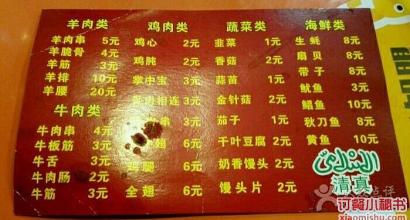 羊肉类
羊肉串 5元
羊脆骨 4元
羊筋 3元
羊排 10元
羊腰 20元
牛肉类
牛肉串 4元
牛板筋 3元
牛舌 3元
牛肉肠 2元
牛筋 3元
鸡肉类
鸡心 2元
鸡肫 2元
鸡筋 2元
掌中宝 3元
相连 3元
串 5元
翅 6元
鸡腿 6元
全翅 6元
蔬菜类
韭菜 1元
香菇 2元
蒜苗 1元
金针菇 2元
茄子 1元
干叶豆腐 2元
奶香馒头 2元
馒头片 2元
海鲜类
生蚝 8元
扇贝 8元
带子 8元
鱿鱼 3元
鲳鱼 10元
秋刀鱼 8元
黄鱼 10元
清真
订餐小秘书
xiaomishu.com